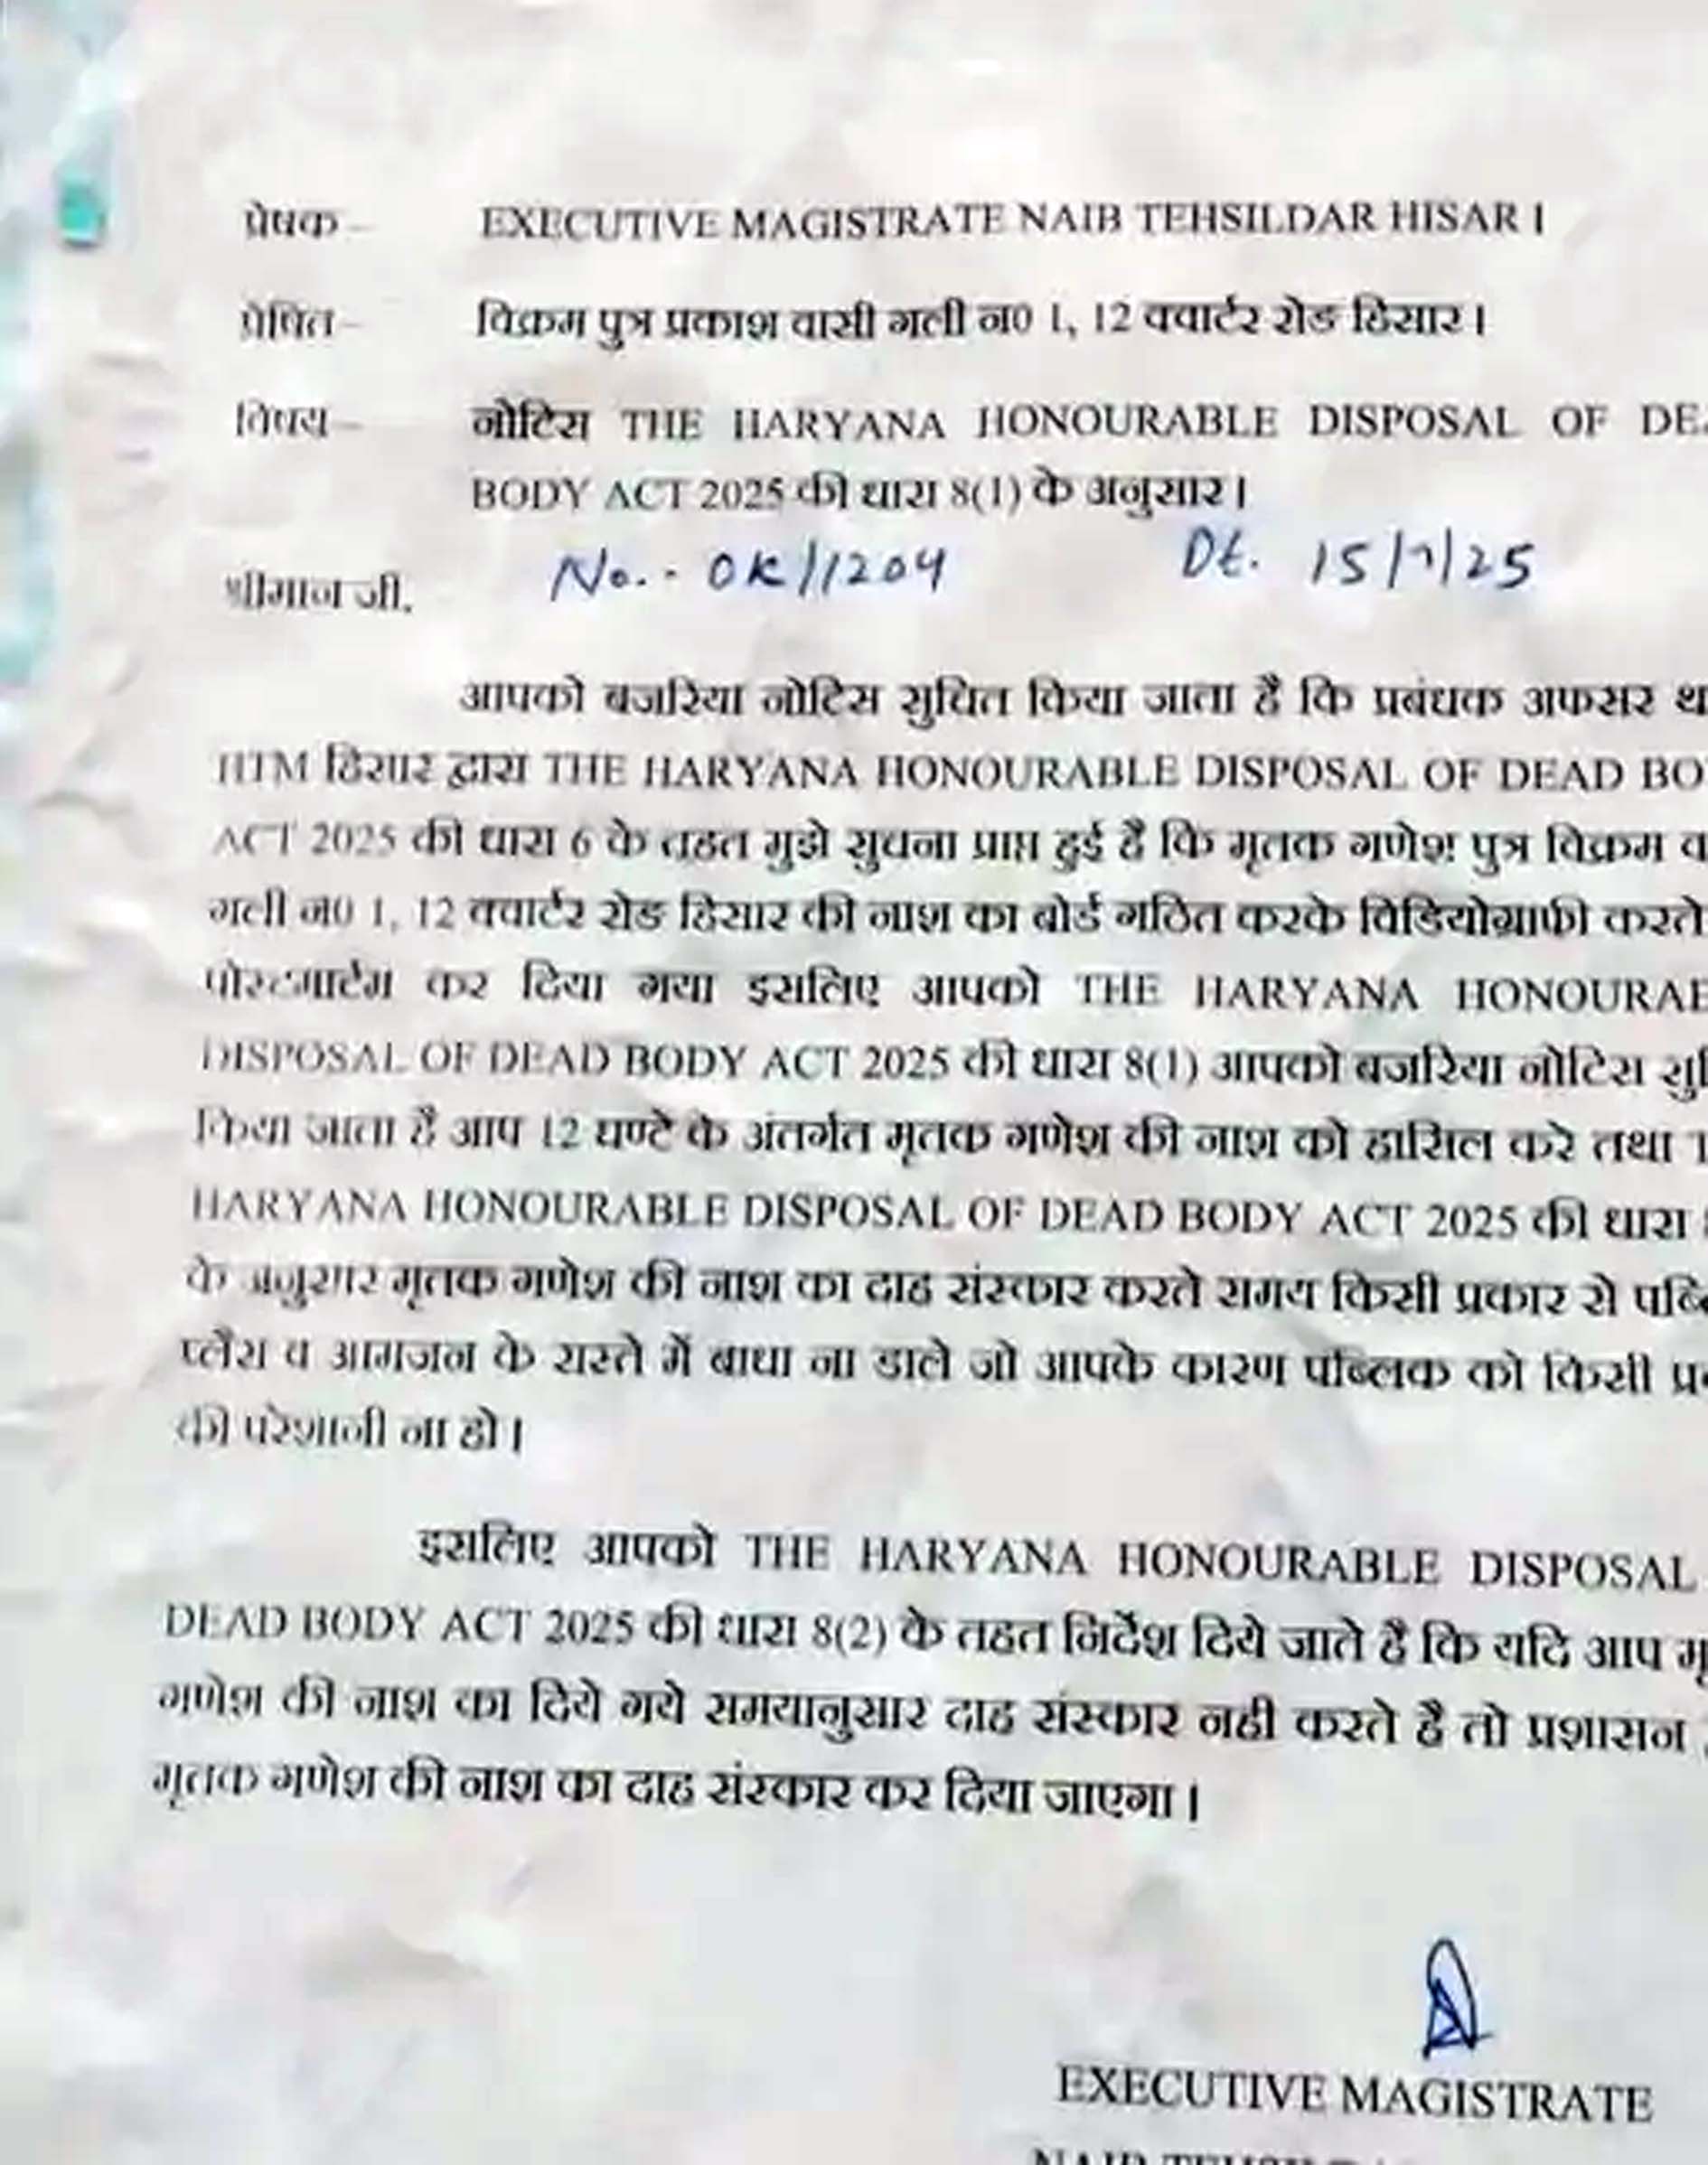 प्रेषक – EXECUTIVE MAGISTRATE NAIB TEHSILDAR HISAR I
प्रेषित – विक्रम पुत्र प्रकाश वासी गली न0 1, 12 क्वार्टर रोड हिसार।
विषय – नोटिस THE HARYANA HONOURABLE DISPOSAL OF
BODY ACT 2025 की धारा 8(1) के अनुसार।
No. - OK//1204 Dt. 15/7/25
श्रीमान जी,
आपको बजरिया नोटिस सुचित किया जाता है कि प्रबंधक अफसर
HTM हिसार द्वारा THE HARYANA HONOURABLE DISPOSAL OF DEAD
ACT 2025 की धारा 6 के तहत मुझे सुचना प्राप्त हुई है कि मृतक गणेश पुत्र विक्रम
गली न0 1, 12 क्वार्टर रोड हिसार की नाश का बोर्ड गठित करके विडियोग्राफी करते
पोस्टमार्टम कर दिया गया इसलिए आपको THE HARYANA
DISPOSAL OF DEAD BODY ACT 2025 की धारा 8(1) आपको बजरिया नोटिस
किया जाता है आप 12 घण्टे के अंतर्गत मृतक गणेश की नाश को हासिल करे तथा
HARYANA HONOURABLE DISPOSAL OF DEAD BODY ACT 2025 की धारा
के अनुसार मृतक गणेश की नाश का दाह संस्कार करते समय किसी प्रकार से
प्लैस व आमजन के रास्ते में बाधा ना डाले जो आपके कारण पब्लिक को किसी
की परेशानी ना हो।
इसलिए आपको THE HARYANA HONOURABLE DISPOSAL
DEAD BODY ACT 2025 की धारा 8(2) के तहत निर्देश दिये जाते है कि यदि आप
गणेश की नाश का दिये गये समयानुसार दाह संस्कार नही करते है तो प्रशासन
मृतक गणेश की नाश का दाह संस्कार कर दिया जाएगा।
EXECUTIVE MAGISTRATE